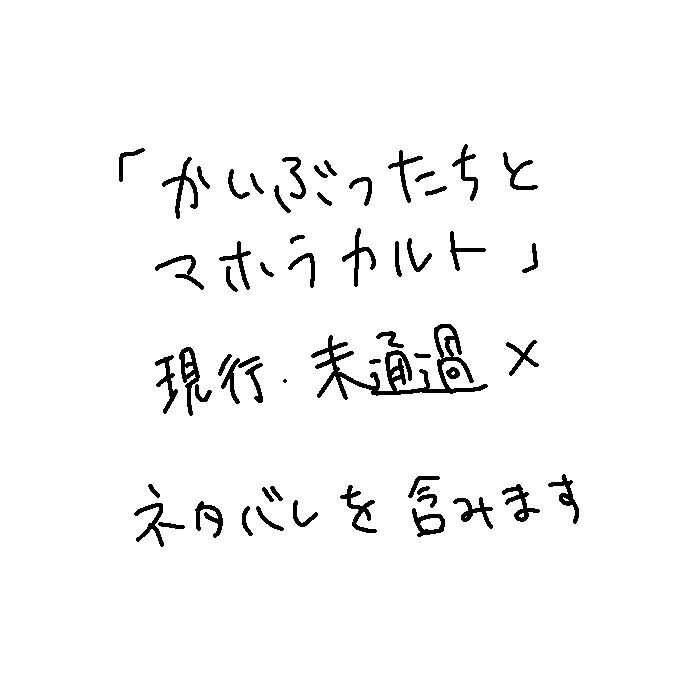 「かいぶつたちと
マホラカルト」
現行・未通過×
ネタバレを含みます